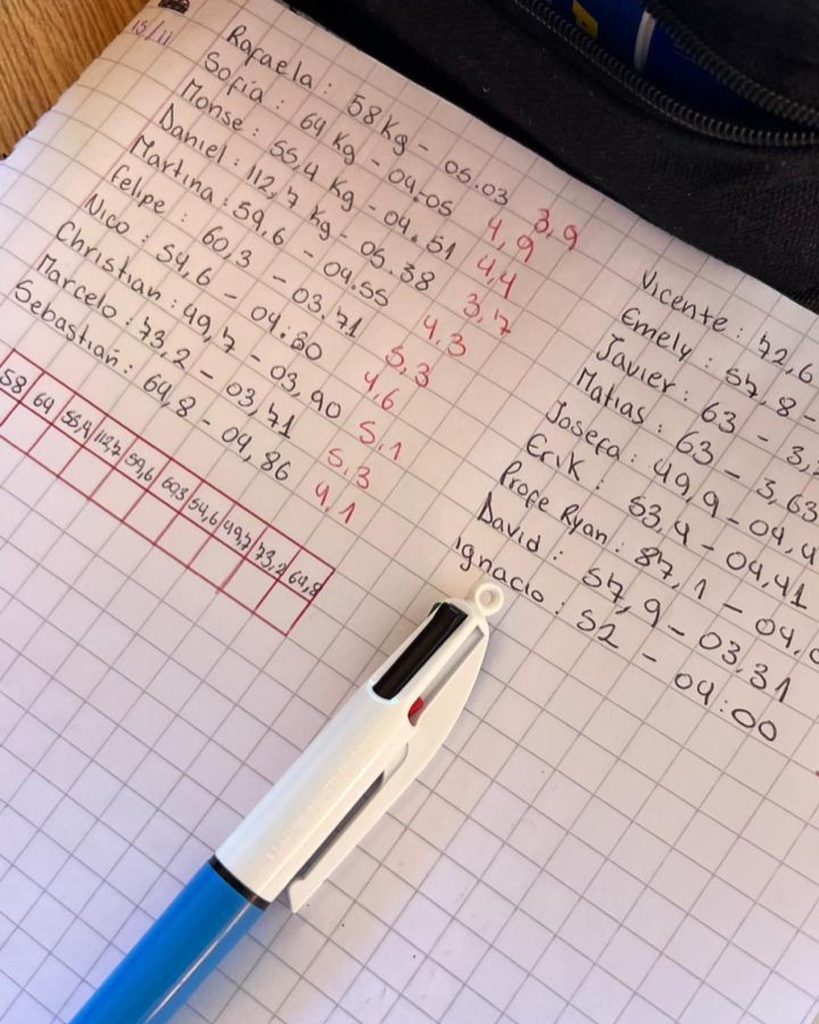 15/11
Rafaela : 58Kg - 05.03 3,9
Sofía : 64 Kg - 04.05 4,9
Monse : 55,4 Kg - 04.51 4,4
Daniel : 112,7 Kg - 05.38 3,7
Martina : 59,6 - 04.55 4,3
Felipe : 60,3 - 03.71 5,3
Nico : 54,6 - 04:60 4,6
Christian : 49,7 - 03,90 5,1
Marcelo : 73,2 - 03,71 5,3
Sebastian : 64,8 - 04,86 4,1
58 64 55,4 112,7 59,6 60,3 54,6 49,7 73,2 64,8
Vicente : 72,6
Emely : 57,8 -
Javier : 63 - 3,
Matias : 63 - 3,63
Josefa : 49,9 - 04,4
Erik : 53,4 - 04,41
Profe Ryan : 87,1 - 04,0
David : 57,9 - 03,31
Ignacio : 52 - 04:00